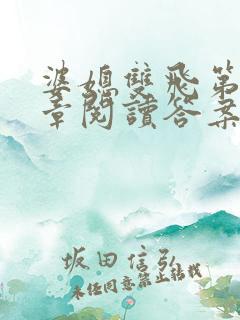 婆媳雙飛第
章閱讀答案
坂田信弘
未经同意禁止转载